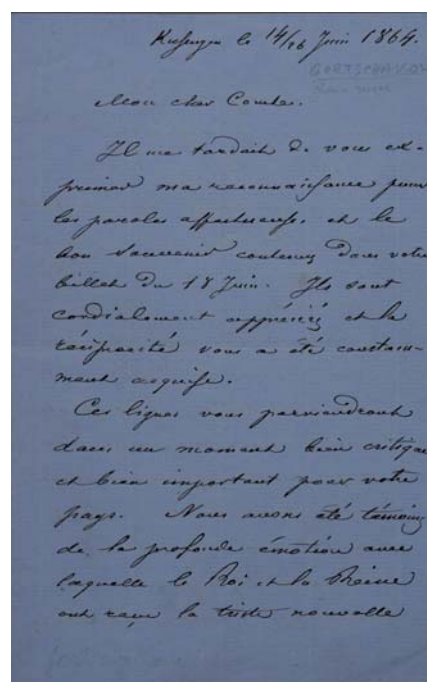 Kissengen le 14/26 Juin 1864.
GORTSCHAKOW
Mon cher Comte.
Il me tardait de vous ex-
primer ma reconnaissance pour
les paroles affectueuses, et le
bon souvenir contenus dans votre
billet du 18 Juin. Ils sont
cordialement appréciés et la
réciprocité vous a été constam-
ment acquise.
Ces lignes vous parviendront
dans un moment bien critique
et bien important pour votre
pays. Nous avons été témoins
de la profonde émotion avec
laquelle le Roi et la Reine
ont reçu la triste nouvelle